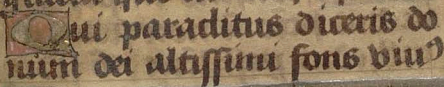 Qui paraclitus diceris do
num dei altissimi fons viuꝰ